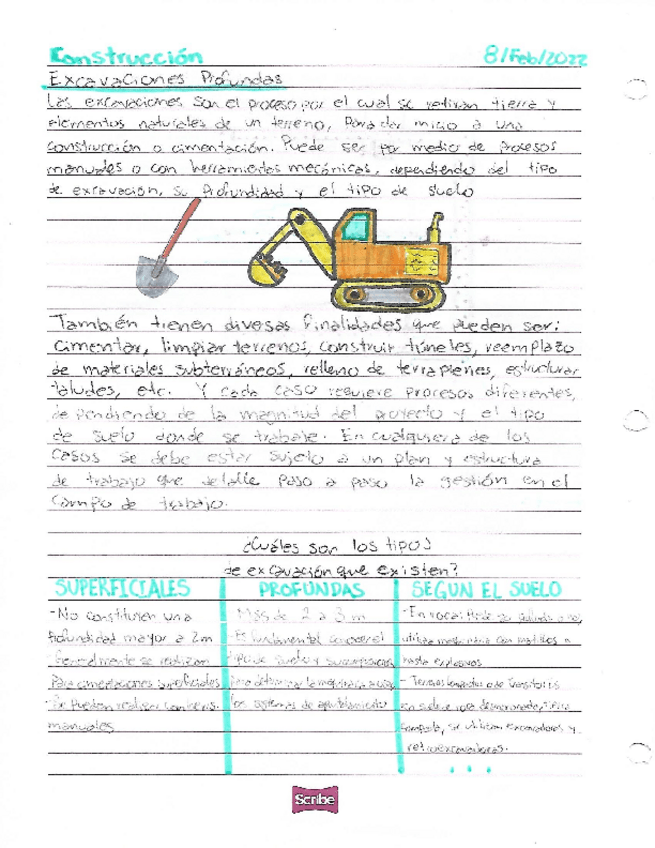 Construcción 8/Feb/2022
Excavaciones Profundas
Las excavaciones son el proceso por el cual se retiran tierra y
elementos naturales de un terreno, para dar inicio a una
construcción o cimentación. Puede ser por medio de procesos
manuales o con herramientas mecánicas, dependiendo del tipo
de excavación, su profundidad y el tipo de suelo
También tienen diversas finalidades que pueden ser:
cimentar, limpiar terrenos, construir túneles, reemplazo
de materiales subterráneos, relleno de terraplenes, estructurar
taludes, etc. Y cada caso requiere procesos diferentes,
dependiendo de la magnitud del proyecto y el tipo
de suelo donde se trabaje. En cualquiera de los
casos se debe estar sujeto a un plan y estructura
de trabajo que detalle paso a paso la gestión en el
campo de trabajo.
¿Cuáles son los tipos
de excavación que existen?
SUPERFICIALES
-No constituyen una
profundidad mayor a 2m
-Generalmente se realizan
para cimentaciones superficiales
-Se pueden realizar con
manuales
PROFUNDAS
-Más de 2 a 3 m
-Es fundamental conocer el
tipo de suelo y
para determinar la maquinaria a usar
los sistemas de apuntalamiento
SEGUN EL SUELO
-En roca:
utiliza maquinaria con martillos o
hasta explosivos
-Terrenos compactos o de transitorios
en suelo o roca desmoronada, tierra
compacta, se utilizan excavadoras y
retroexcavadoras.
...
Scribe